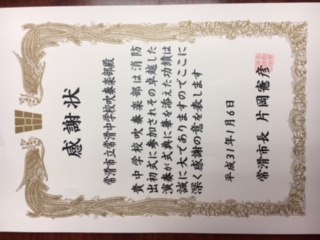 感謝状
常滑市立常滑中学校吹奏楽部殿
貴中学校吹奏楽部は消防
出初式に参加されその卓越した
演奏が式典に華を添えた功績は
誠に大でありますのでここに
深く感謝の意を表します
平成31年1月6日
常滑市長 片岡憲彦